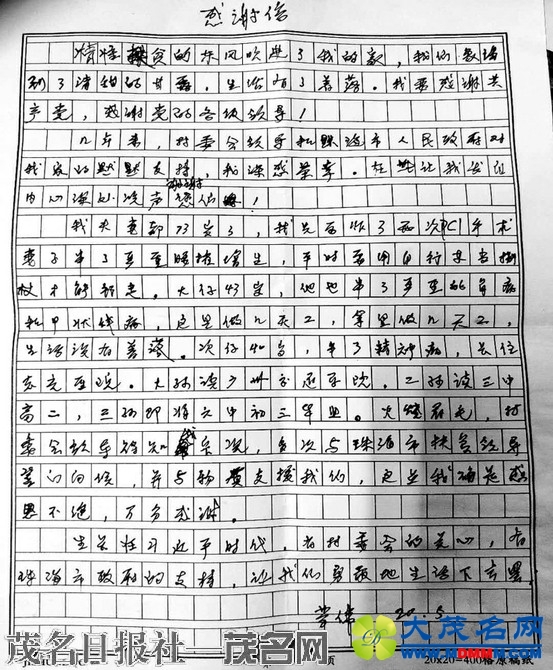 感谢信
精准扶贫的东风吹进了我的家,我们家得
到了清甜的甘露,生活有了着落。我要感谢共
产党,感谢党的各级领导!
几年来,村委会领导和珠海市人民政府对
我家的默默支持,我深感荣幸。在此让我发自
内心深处说声谢谢您们!
我夫妻都73岁了,我先后作了两次PC手术
妻子患了严重腰椎增生,平时要用自行车当拐
杖才能行走。大仔43岁,他也患了严重的胃病
和甲状线病,这里做几天工,拿里做几天工,
生活没有着落。次仔40多,患了精神病,长住
医院。大孙读广州医学院。二孙读三中
高二,三孙即将六中初三毕业。
委会领导得知我家,多次与珠海市扶贫领导
登门问候,并与物质支援我们,这是我确是感
恩不绝,万分感谢。
生长在习近平时代,有村委会的关心,有
珠海市政府的支持,让我们勇敢地生活下去
20.5
大茂名网
www.DMMW.com
茂名日报社——茂名网
20×20=400格原稿纸